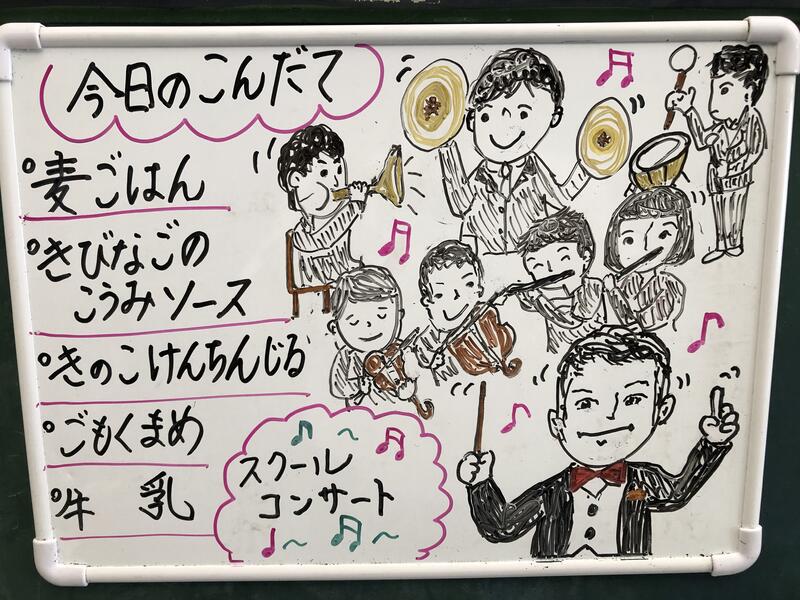 今日のこんだて
麦ごはん
きびなごの
こうみソース
きのこけんちんじる
ごもくまめ
牛 乳
スクール
コンサート